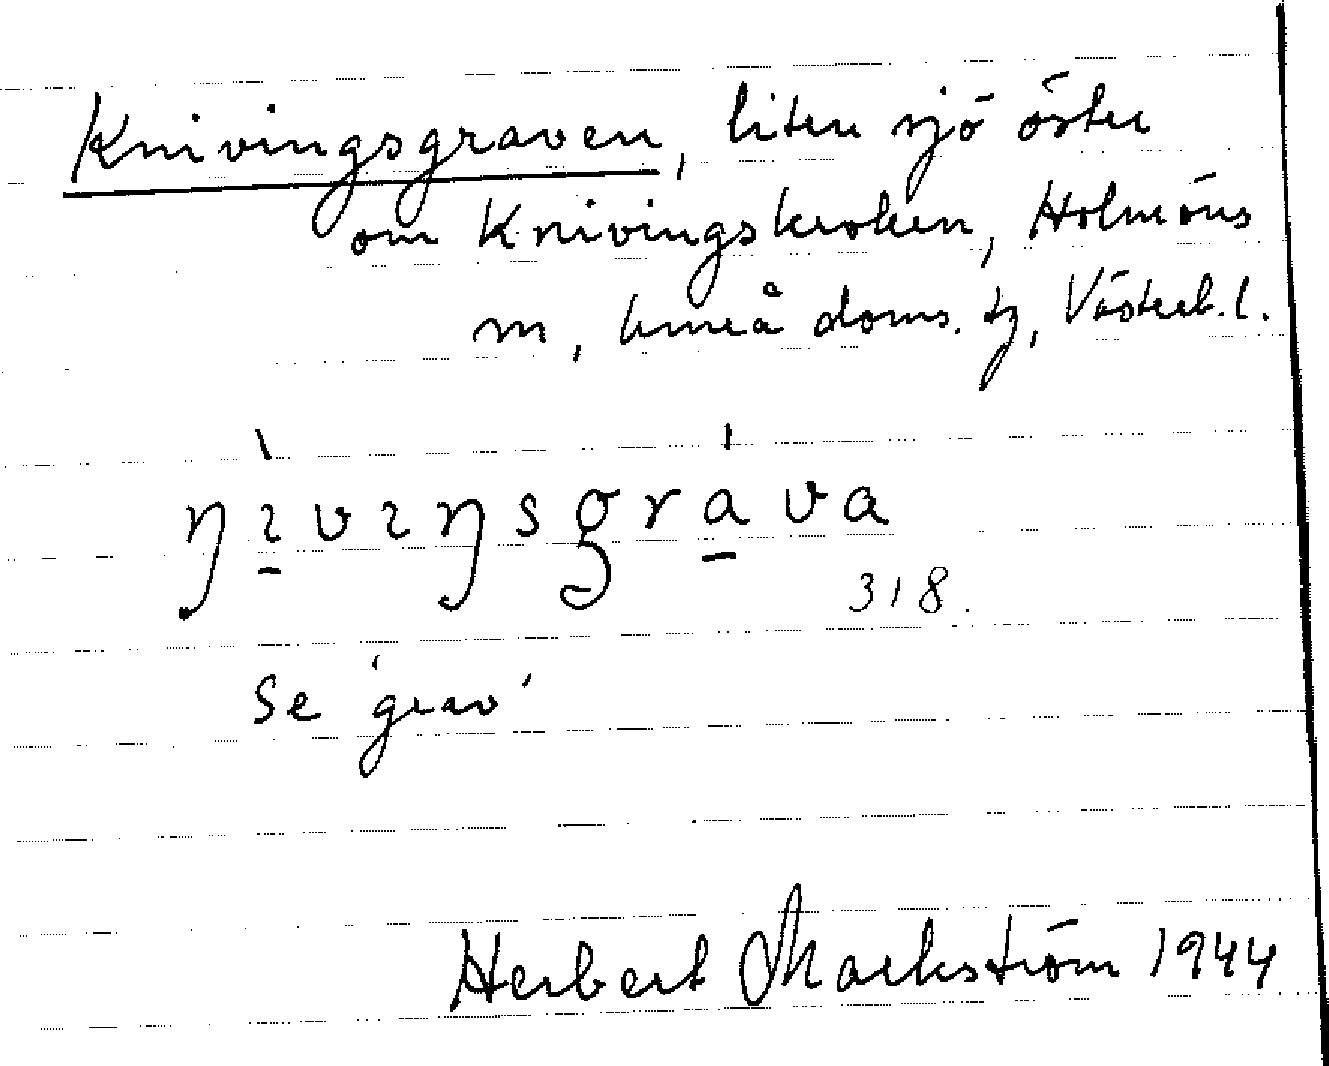 Knivingsgraven, liten sjö öster
om Knivingskroken, Holmöns
m, Umeå doms. tg, Västerb. l.
ŋɿvɿŋsgrava
318.
Se 'grav'
Herbert Markström 1944